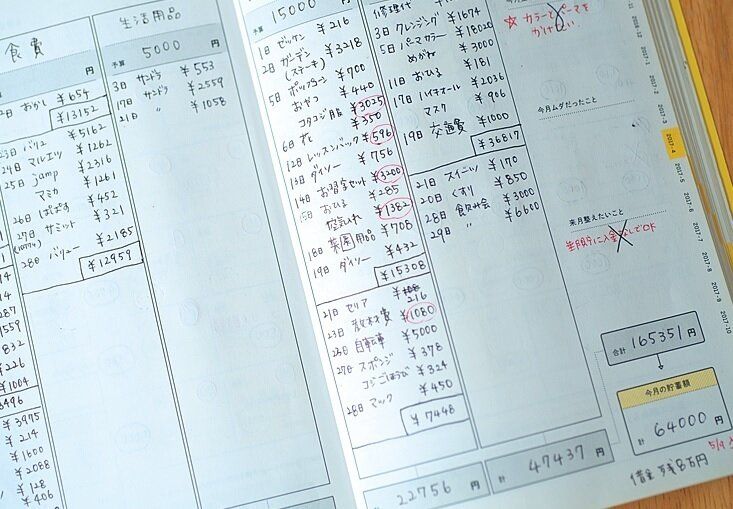 食費
円
2日 おかし ¥654
¥13152
23日 バリュ ¥5162
24日 マルエツ ¥1262
25日 jamp ¥2316
マミカ ¥1261
26日 ¥452
27日 サミット ¥321
28日 バリュー ¥2185
¥12959
287
1559
832
¥226
¥1004
3496
¥3975
¥214
¥1600
¥2088
¥128
¥406
生活用品
予算 5000 円
3日 サンドラ ¥553
17日 サンドラ ¥2559
21日 〃 ¥1058
予算 15000 円
1日 ゼッケン ¥216
2日 ガーデン ¥3218
(ステーキ)
5日 ポップコーン ¥700
おやつ ¥440
コタコジ服 ¥3025
6日 花 ¥350
12日 レッスンバック ¥596
13日 ダイソー ¥756
14日 お習字セット ¥3200
15日 おひる ¥285
空気入れ ¥1382
18日 菜園用品 ¥708
19日 ダイソー ¥432
¥15308
21日 セリア 216
23日 教材費 ¥1080
23日 自転車 ¥5000
27日 スポンジ ¥378
コジごほうび ¥324
28日 マック ¥450
¥7448
22756 円
修理代
3日 クレンジング ¥1674
5日 パーマカラー ¥18020
めがね ¥3000
11日 おひる ¥181
17日 ハイチオール ¥2036
マスク ¥906
19日 交通費 ¥1000
¥36817
21日 スイーツ ¥170
20日 くすり ¥850
28日 食飲み会 ¥3000
29日 〃 ¥6600
計 47437 円
☆ カラーとパーマを
かけたい。
今月ムダだったこと
来月整えたいこと
合計 165351 円
今月の貯蓄額
計 64000 円
借金 残8万円
2017-1
2017-2
2017-3
2017-4
2017-5
2017-6
2017-7
2017-8
2017-9
2017-10